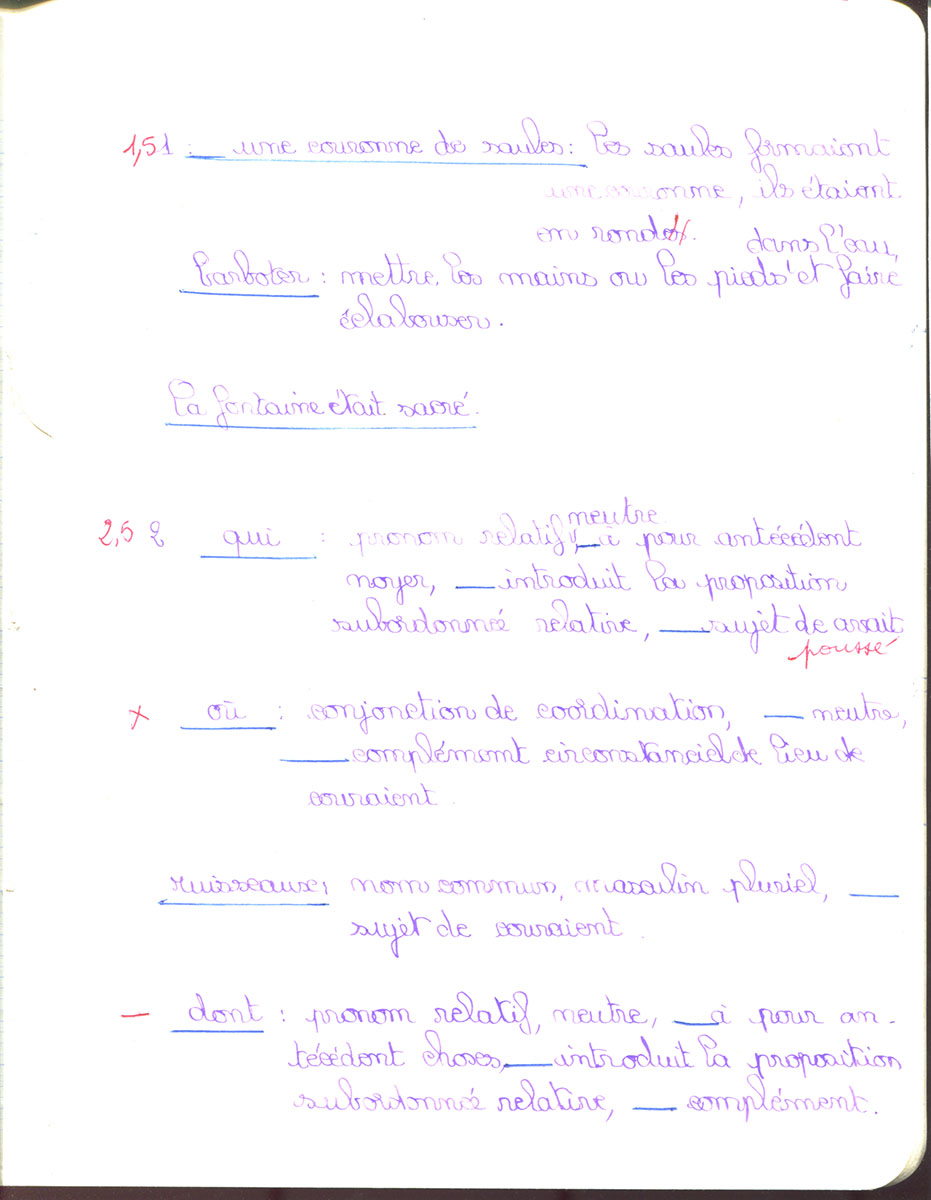 1,5 1 : une couronne de saules : les saules formaient
une couronne, ils étaient
en ronde.
dans l'eau,
Barboter : mettre les mains ou les pieds et faire
éclabousser.
La fontaine était sacré.
2,5 2 qui : pronom relatif, neutre à pour antécédent
noyer, introduit la proposition
subordonnée relative, sujet de avait
poussé
x où : conjonction de coordination, neutre,
complément circonstanciel de lieu de
couraient.
ruisseaux : nom commun, masculin pluriel,
sujet de couraient.
— dont : pronom relatif, neutre, à pour an-
técédent choses, introduit la proposition
subordonnée relative, complément.